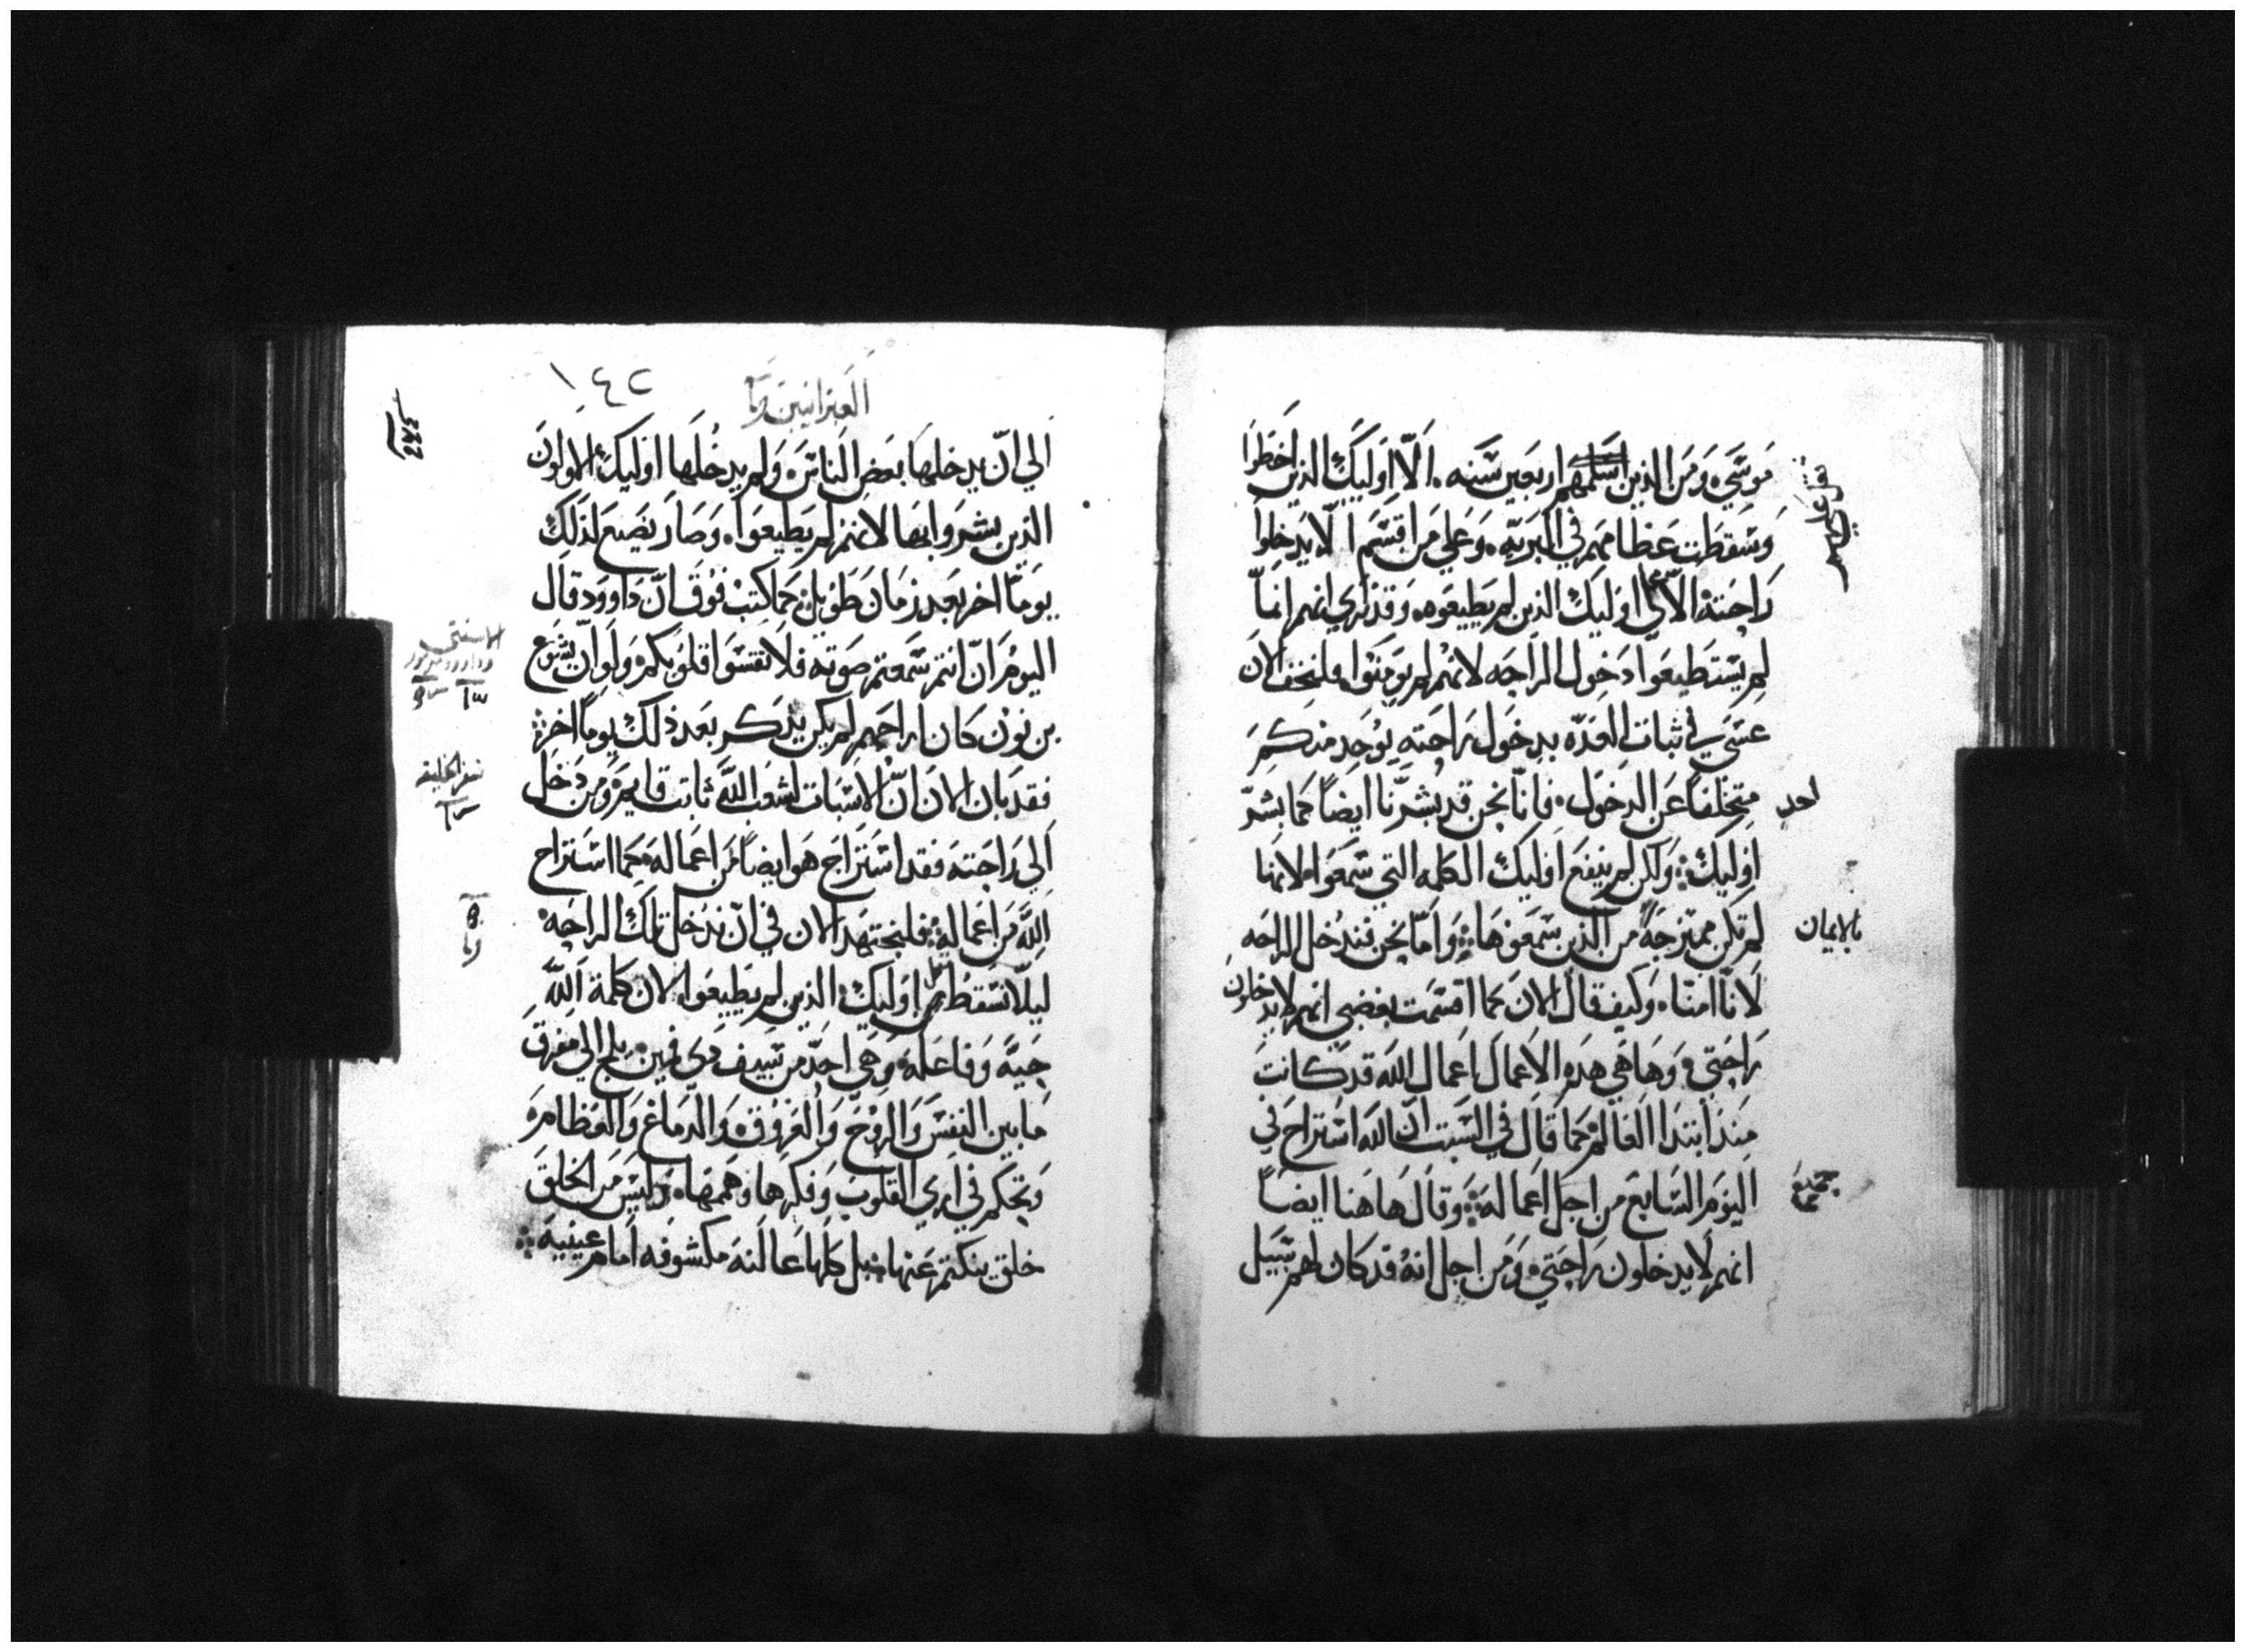 موسي ومن الذين اسلمهم اربعين سنه الا اوليك الذين اخطوا
وسقطت عظامهم في البريه وعلي من اقسم الا يدخلوا
راحته الا اوليك الذين لم يطيعوه وقد نري انهم انما
لم يستطيعوا دخول الراحه لانهم لم يومنوا فلنخف الان
عسي في ثبات العده بدخول راحته يوجد منكم
احد
متخلفا عن الدخول فانا نحن قد بشرنا ايضا كما بشر
اوليك ولكن لم ينفع اوليك الكلمه التي سمعوا لانها
بالايمان
لم تكن ممتزجة من الذين سمعوها واما نحن فندخل الراحه
لانا امنا وكيف قال الان كما اقسمت بغضبي انهم لا يدخلون
راحتي وها هي هده الاعمال اعمال الله قد كانت
منذ ابتدا العالم كما قال في السبت ان الله استراح في
جميع
اليوم السابع من اجل اعماله وقال هاهنا ايضا
انهم لا يدخلون راحتي ومن اجل انه قد كان لهم سبيل
١٤٢
العبرانيين
الي ان يدخلها بعض الناس ولم يدخلها اوليك الاولون
الذين بشروا بها لانهم لم يطيعوا وصار يضع لذلك
يوما اخر بعد زمان طويل كما كتب فوق ان داوود قال
اليوم ان انتم سمعتم صوته فلا تقسوا قلوبكم ولو ان يشوع
بن نون كان اراحهم لم يكن يذكر بعد ذلك يوما اخر
فقد بان الان ان الاسبات لشعب الله ثابت قايم ومن دخل
الي راحته فقد استراح هو ايضا من اعماله كما استراح
الله من اعماله فلنجتهد الان في ان ندخل تلك الراحه
ليلا نسقط اوليك الذين لم يطيعوا لان كلمة الله
حية وفاعله وهي احد من سيف دي فمين يلج الي مفرق
ما بين النفس والروح والعروق والدماغ والعظام
وتحكم في اري القلوب وفكرها وهمها وليس من الخلق
خلق ينكتم عنها بل كلها عالنه مكشوفه امام عينيه